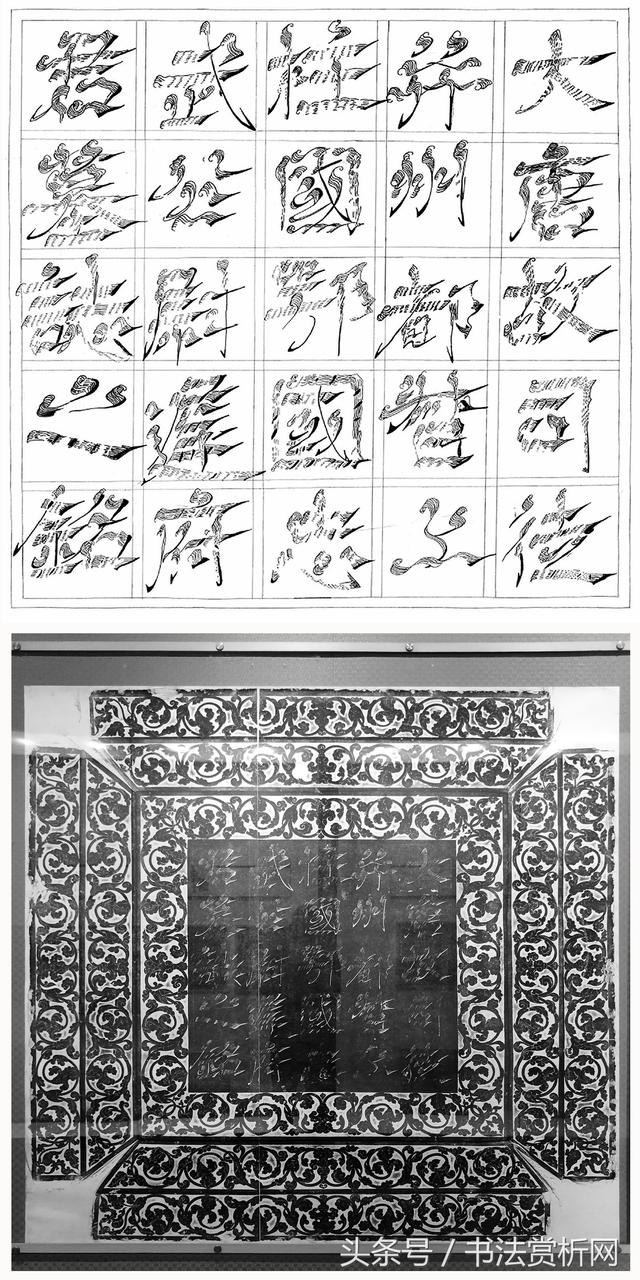 大唐故司徒
并州都督上
柱國鄂國忠
武公尉遲府
君墓誌之銘
头条号 / 书法赏析网